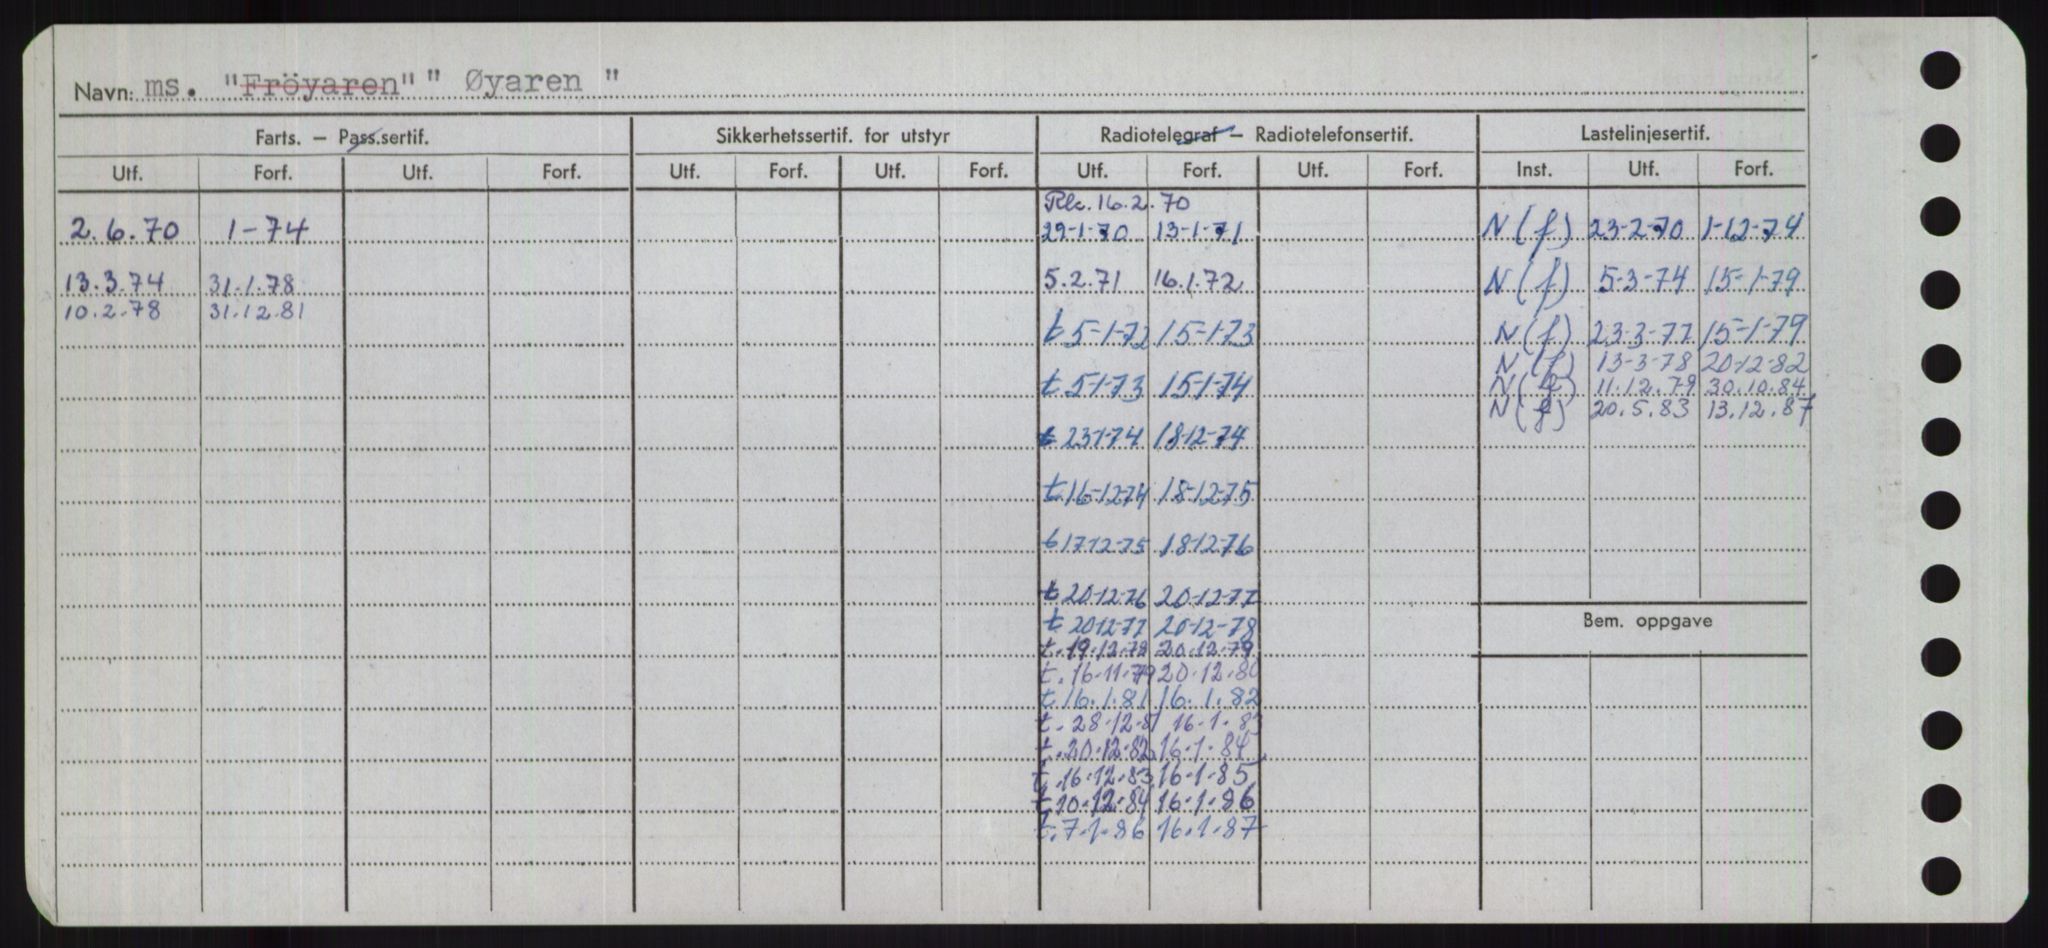 Navn: ms. "Fröyaren" " Øyaren "
Farts. – Pass.sertif. Sikkerhetssertif. for utstyr Radiotelegraf – Radiotelefonsertif. Lastelinjesertif.
Utf. Forf. Utf. Forf. Utf. Forf. Utf. Forf. Utf. Forf. Utf. Forf. Inst. Utf. Forf.
16.2.70
2.6.70 1-74 29-1-70 13-1-71 N(f) 23-2-70 1-12-74
13.3.74 31.1.78 5.2.71 16.1.72 N(f) 5-3-74 15-1-79
10.2.78 31.12.81
t 5-1-72 15-1-73 N(f) 23-3-77 15-1-79
N(f) 13-3-78 20-12-82
t 5-1-73 15-1-74 N(f) 11.12.79 30.10.84
N(f) 20.5.83 13.12.87
t 23-1-74 18-12-74
t 16-12-74 18-12-75
t 17-12-75 18-12-76
t 20-12-76 20-12-77
t. 20-12-77 20-12-78
Bem. oppgave
t. 19.12.78 20.12.79
t. 16.11.79 20.12.80
t 16.1.81 16.1.82
t. 28.12.81 16.1.83
t. 20.12.82 16.1.84
t. 16.12.83 16.1.85
t. 20.12.84 16.1.86
t. 7.1.86 16.1.87